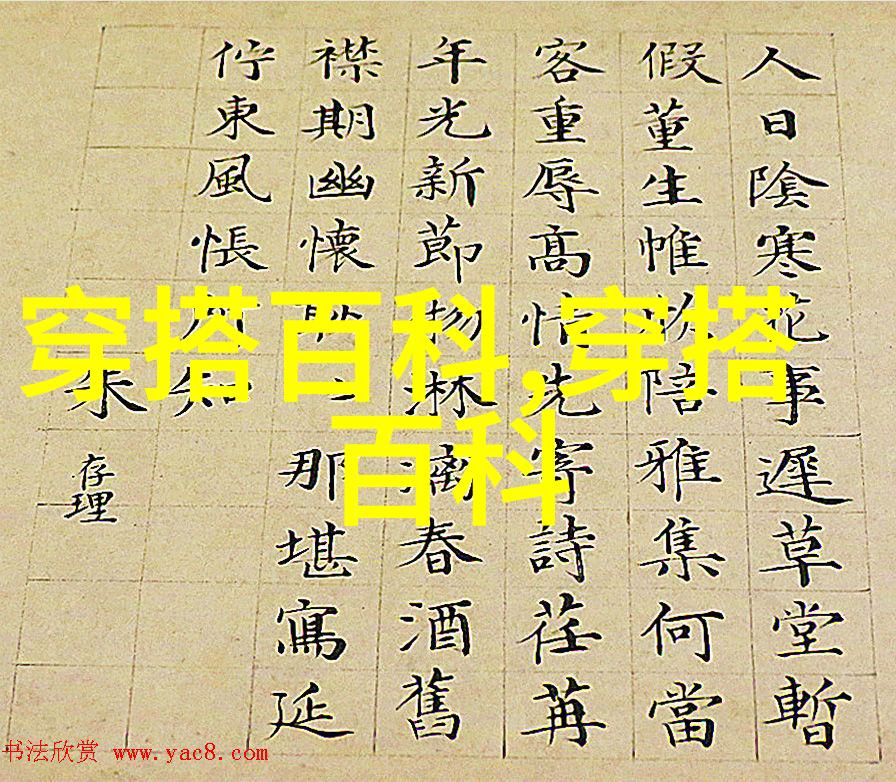 人日陰寒花事遲草堂暫
假董生帷欣陪雅集何當
客重辱高情先寄詩荏苒
年光新節物淋漓春酒舊
襟期幽懷那堪寫延
佇東風悵知
朱存理
穿搭百科,穿搭
百科
书法欣赏 www.yac8.com